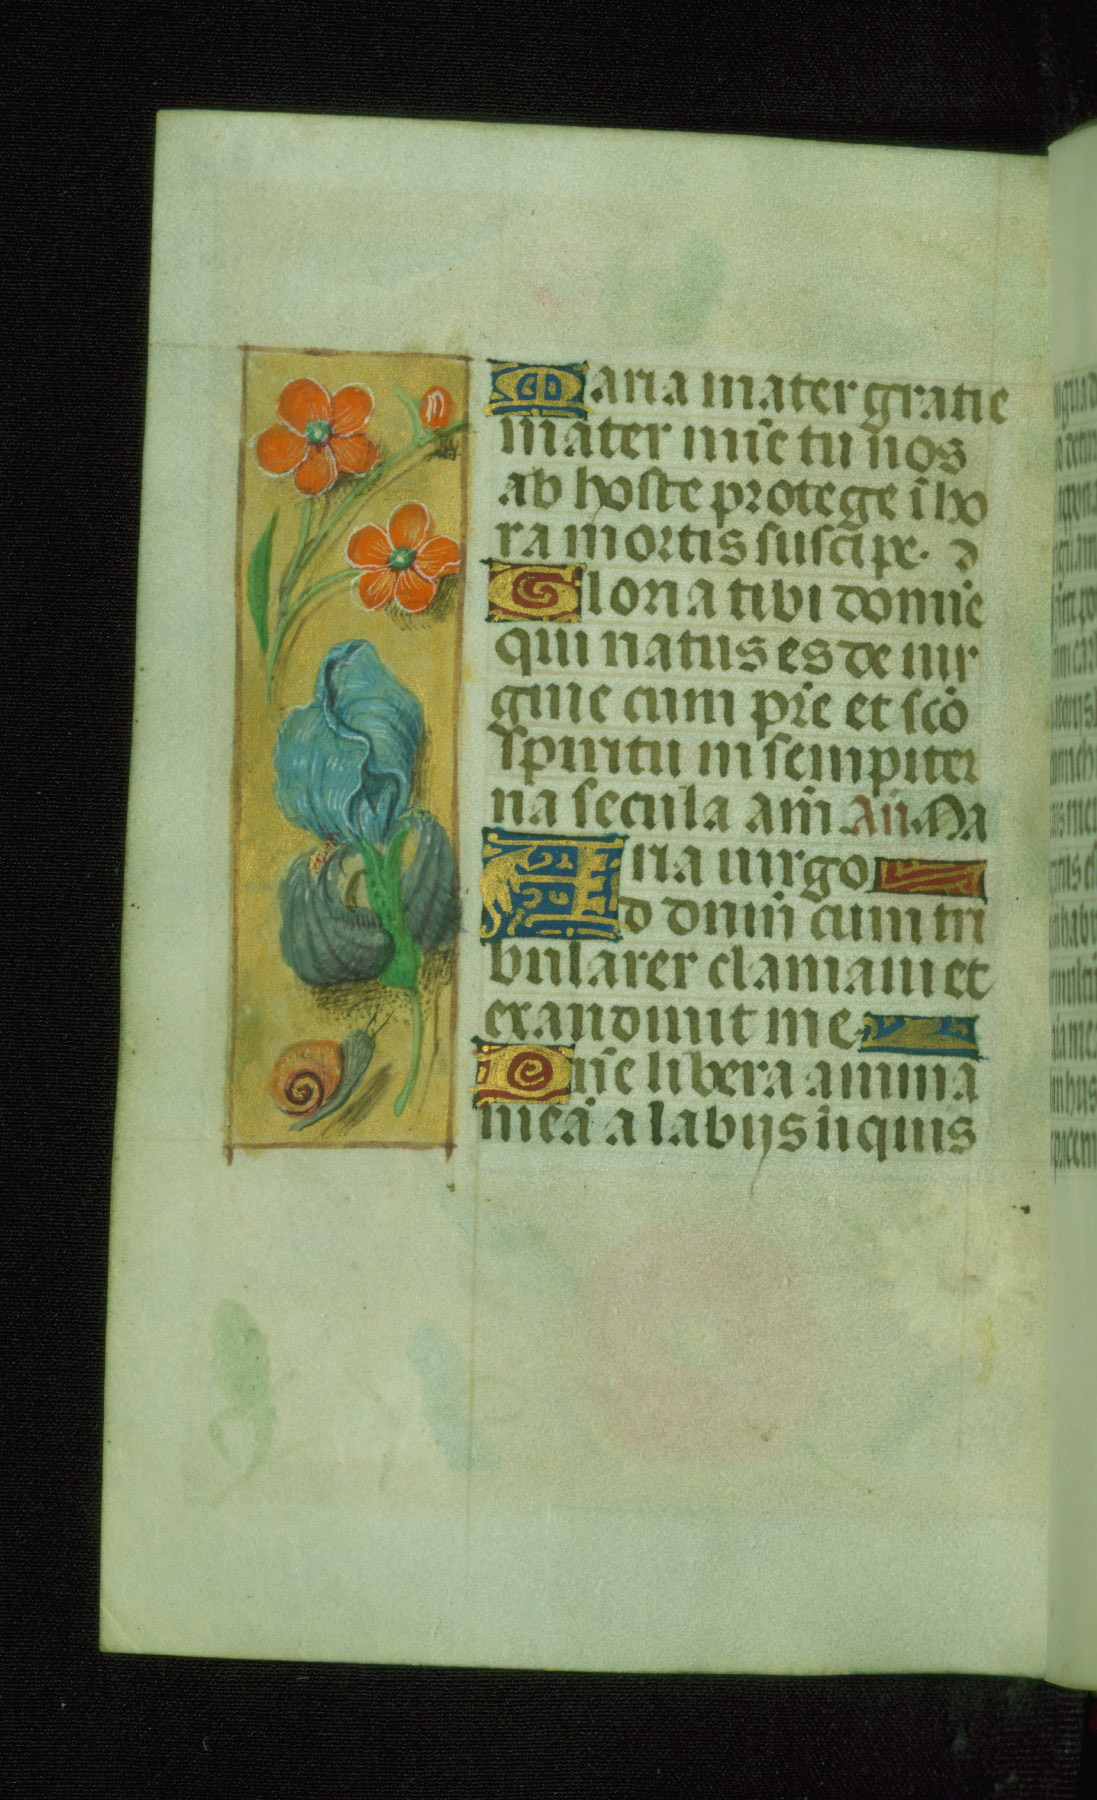 Maria mater gratie
mater mīe tu nos
ab hoste protege ī ho
ra mortis suscipe. D
Gloria tibi domīe
qui natus es de uir
gine cum pr̄e et sc̄o
spiritu in sempiter
na secula am̄ Añ. Ma
ria uirgo
Ad dn̄m cum tri
bularer clamaui et
exaudiuit me
Dn̄e libera anima
meā a labijs iīquis